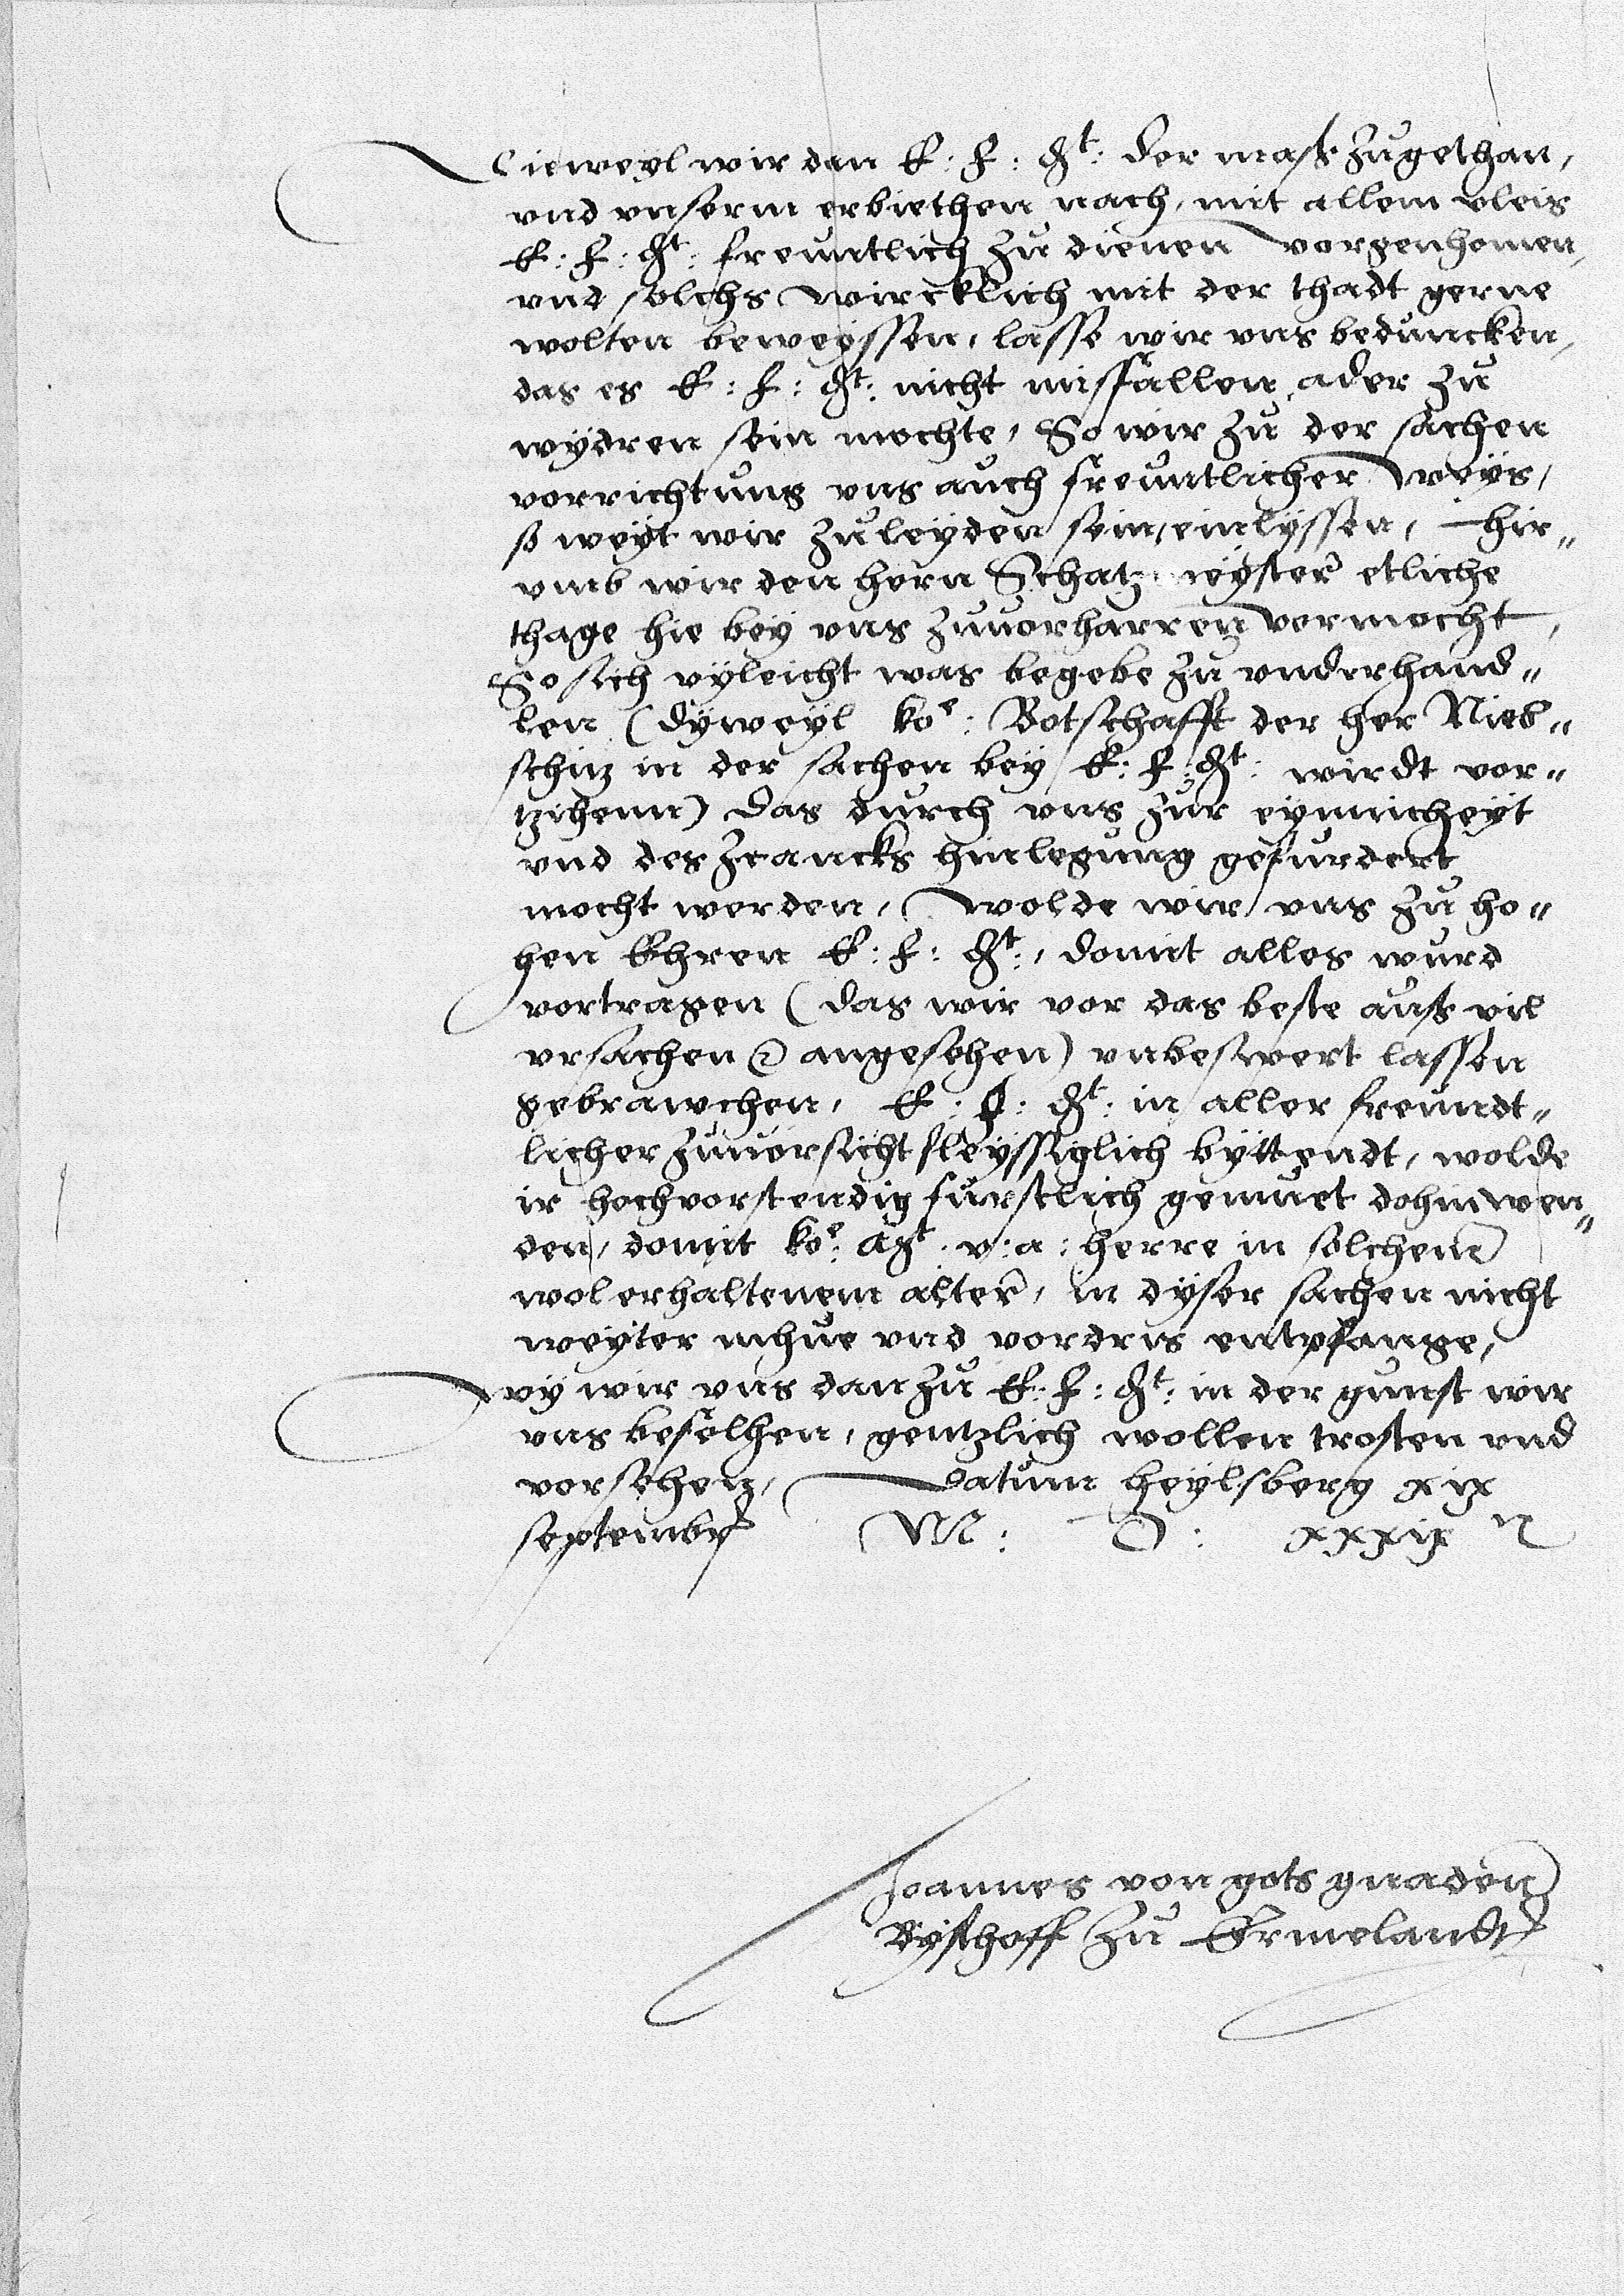 Dieweyl wir dan E: F: Gt: der mass zugethan,
vnd vnserm erbiethen nach, mit allem vleis
E: F: Gt: freuntlich zu dienen vorgenhomen,
vnd solchs wircklich mit der thadt gerne
wolten beweyssen, lasse wir vns beduncken,
das es E: F: Gt: nicht misfallen ader zu
wydren sein mochte, So wir zu der sachen
vorrichtung vns auch freuntlicher weys,
so weyt wir zuleyden sein, einlyssen, hir„
vmb wir den hern Schatzmeyster etliche
thage hie bey vns zuuorharren vormocht,
So sich vyleicht was begebe zu vnderhand„
len (dyweyl koe: Botschafft der her Nieb„
schitz in der sachen bey E: F: Gt: wirdt vor„
tzihenn) das durch vns zur eynnicheyt
vnd des zcancks hinlegung gefurdert
mocht werden, wolde wir vns zu ho„
hen Ehren E: F: Gt:, domit alles wurd
vortragen (das wir vor das beste aus vil
vrsachen angesehen) vnbeswert lassen
gebrawchen, E: F: Gt: in aller freundt„
licher zuuorsicht fleyssiglich byttendt, wolde
ir hochvorstendig furstlich gemuet dohin wen„
den, domit koe: Mt. v: a: herre in solchem
wolerhaltenem alter, in dyser sachen nicht
weyter mhue vnd vordris entpfange,
wy wir vns dan zu E: F: Gt: in der gunst wir
vns befelhen, gentzlich wollen trosten vnd
vorsehen, Datum Heylsberg xix
septembr M: D: xxxix
Joannes von gots gnaden
Byschoff zu Ermelandt